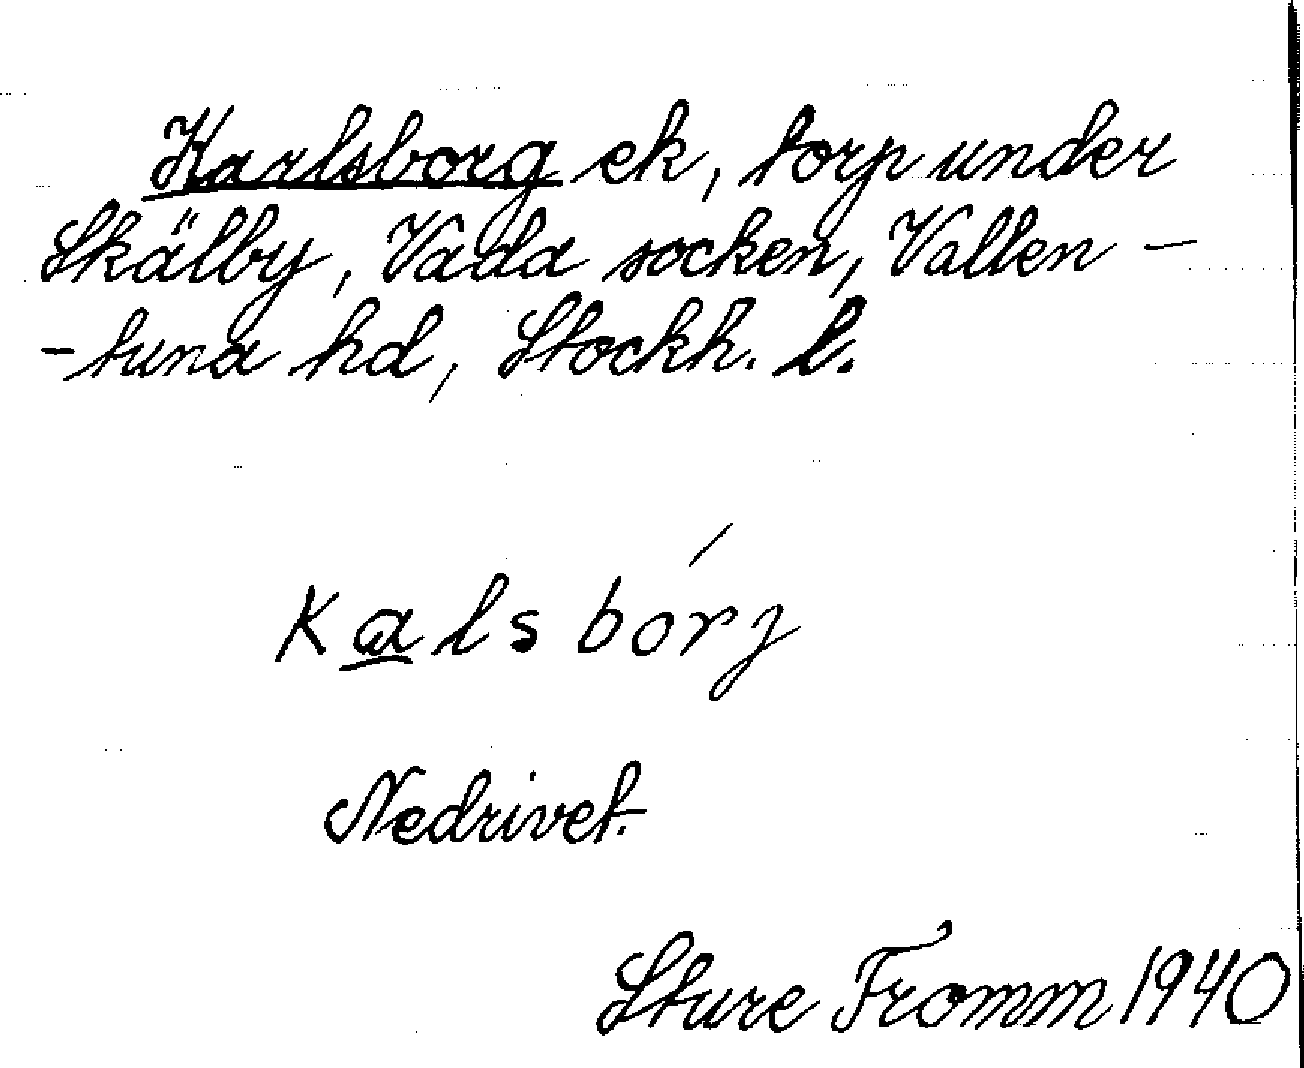 Karlsborg ek, torp under
Skälby, Vada socken, Vallen-
-tuna hd, Stockh. l.
Kalsbórj
Nedrivet.
Sture Fromm 1940